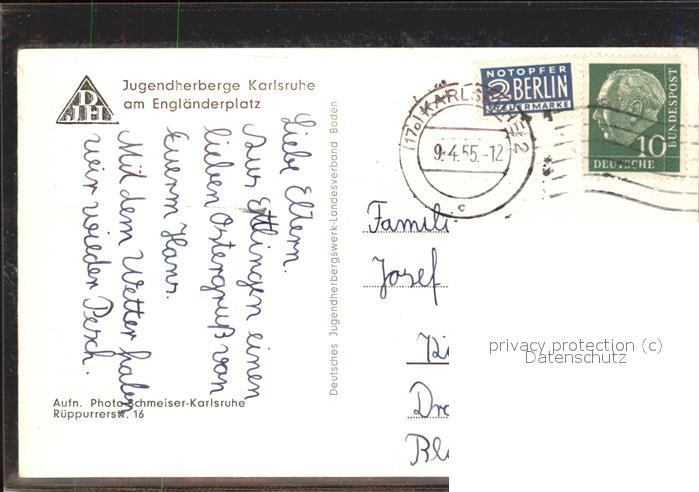 DJH
Jugendherberge Karlsruhe
am Engländerplatz
Liebe Eltern.
Aus Ettlingen einen
lieben Ostergruß von
Eurem Hans.
Mit dem Wetter haben
wir wieder Pech.
Aufn. Photo-Schmeiser-Karlsruhe
Rüppurrerstr. 16
Deutsches Jugendherbergswerk-Landesverband Baden
NOTOPFER
2 BERLIN
STEUERMARKE
(17a) KARLSRUHE 2
9.4.55.-12
c
BUNDESPOST
10
DEUTSCHE
Famili
Josef
Dro
Bl
privacy protection (c)
Datenschutz